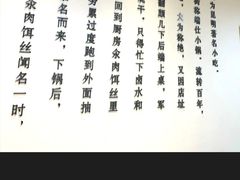 为昆明著名小吃。
称端仕小锅。流转百年，
大为称绝，又因店址
几下后端上桌，军
干，只得忙下卤水和
回到厨房汆肉饵丝里
累过度跑到外面抽
名而来，下锅后，
汆肉饵丝闻名一时，